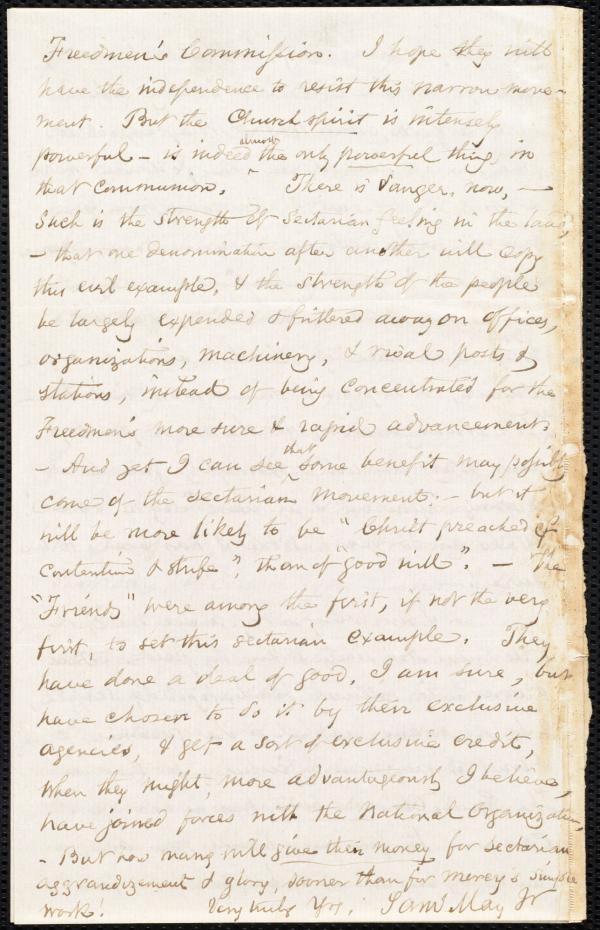 Freedmen's Commission. I hope they will
have the independence to resist this narrow move-
ment. But the Church spirit is intensely
powerful – is indeed almost the only powerful thing in
that Communion. There is danger, now, —
such is the strength of Sectarian feeling in the land,
– that one denomination after another will copy
this evil example, & the strength of the people
be largely expended & frittered away on offices,
organizations, machinery, & rival posts &
stations, instead of being concentrated for the
Freedmen's more sure & rapid advancement.
– And yet I can see that some benefit may possibly
come of the sectarian movement. – but it
will be more likely to be "Christ preached of
contention & strife", than of "good will". – The
"Friends" were among the first, if not the very
first, to set this sectarian example. They
have done a deal of good, I am sure, but
have chosen to do it by their exclusive
agencies, & get a sort of exclusive credit,
when they might, more advantageously I believe,
have joined forces with the National Organization,
– But how many will give their money for sectarian
aggrandizement & glory, sooner than for mercy's simple
work! Very truly Yrs, Saml. May Jr